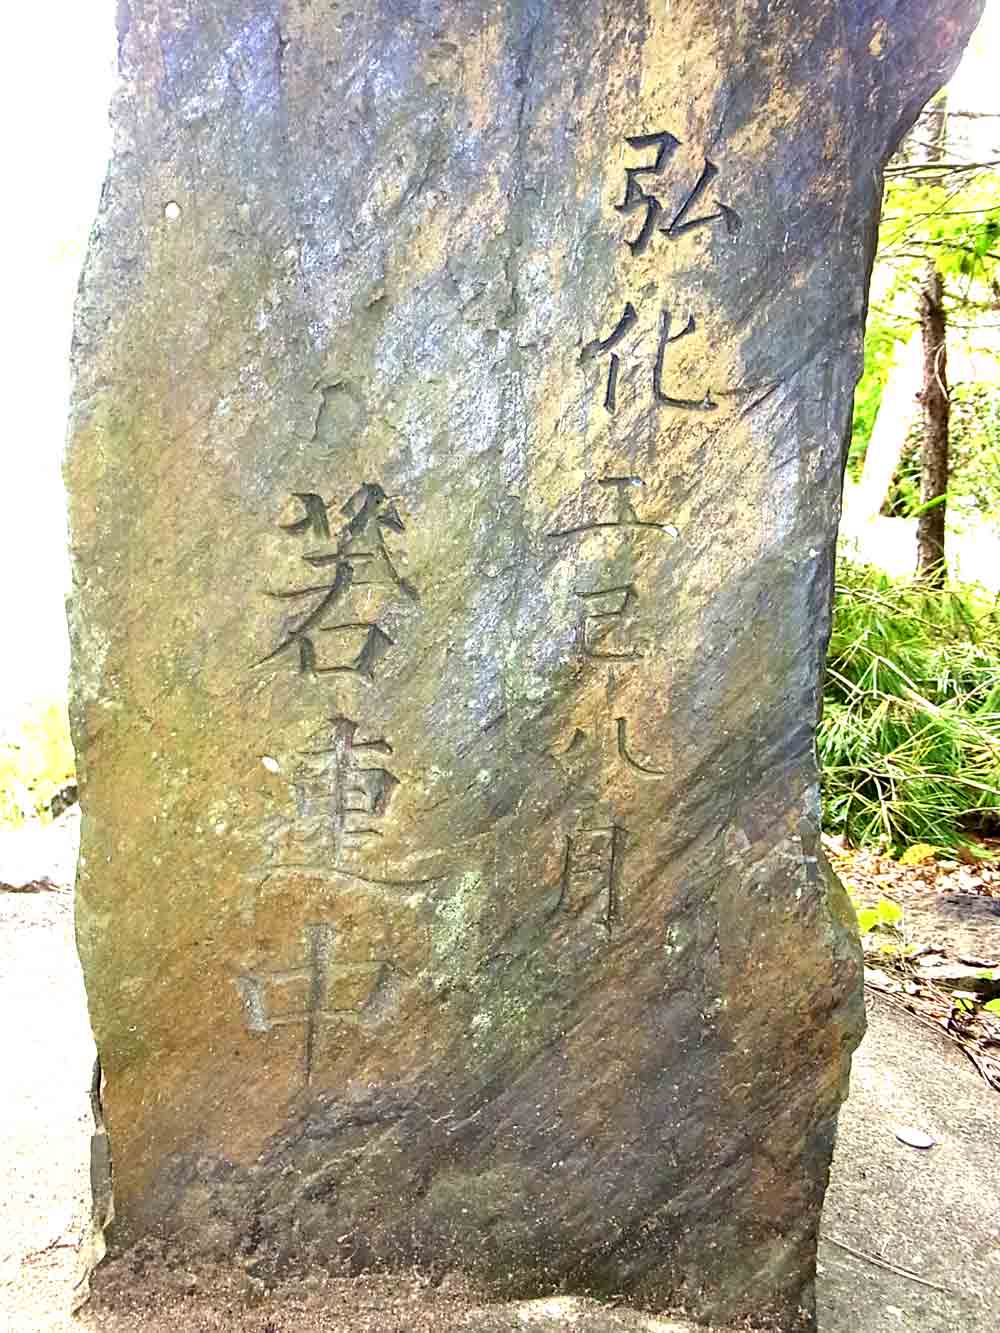 弘化二巳八月
若連中